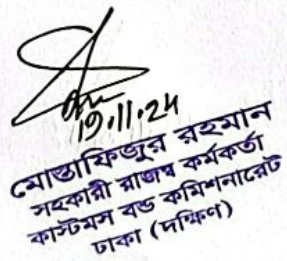 19.11.24
মোস্তাফিজুর রহমান
সহকারী রাজস্ব কর্মকর্তা
কাস্টমস বন্ড কমিশনারেট
ঢাকা (দক্ষিণ)